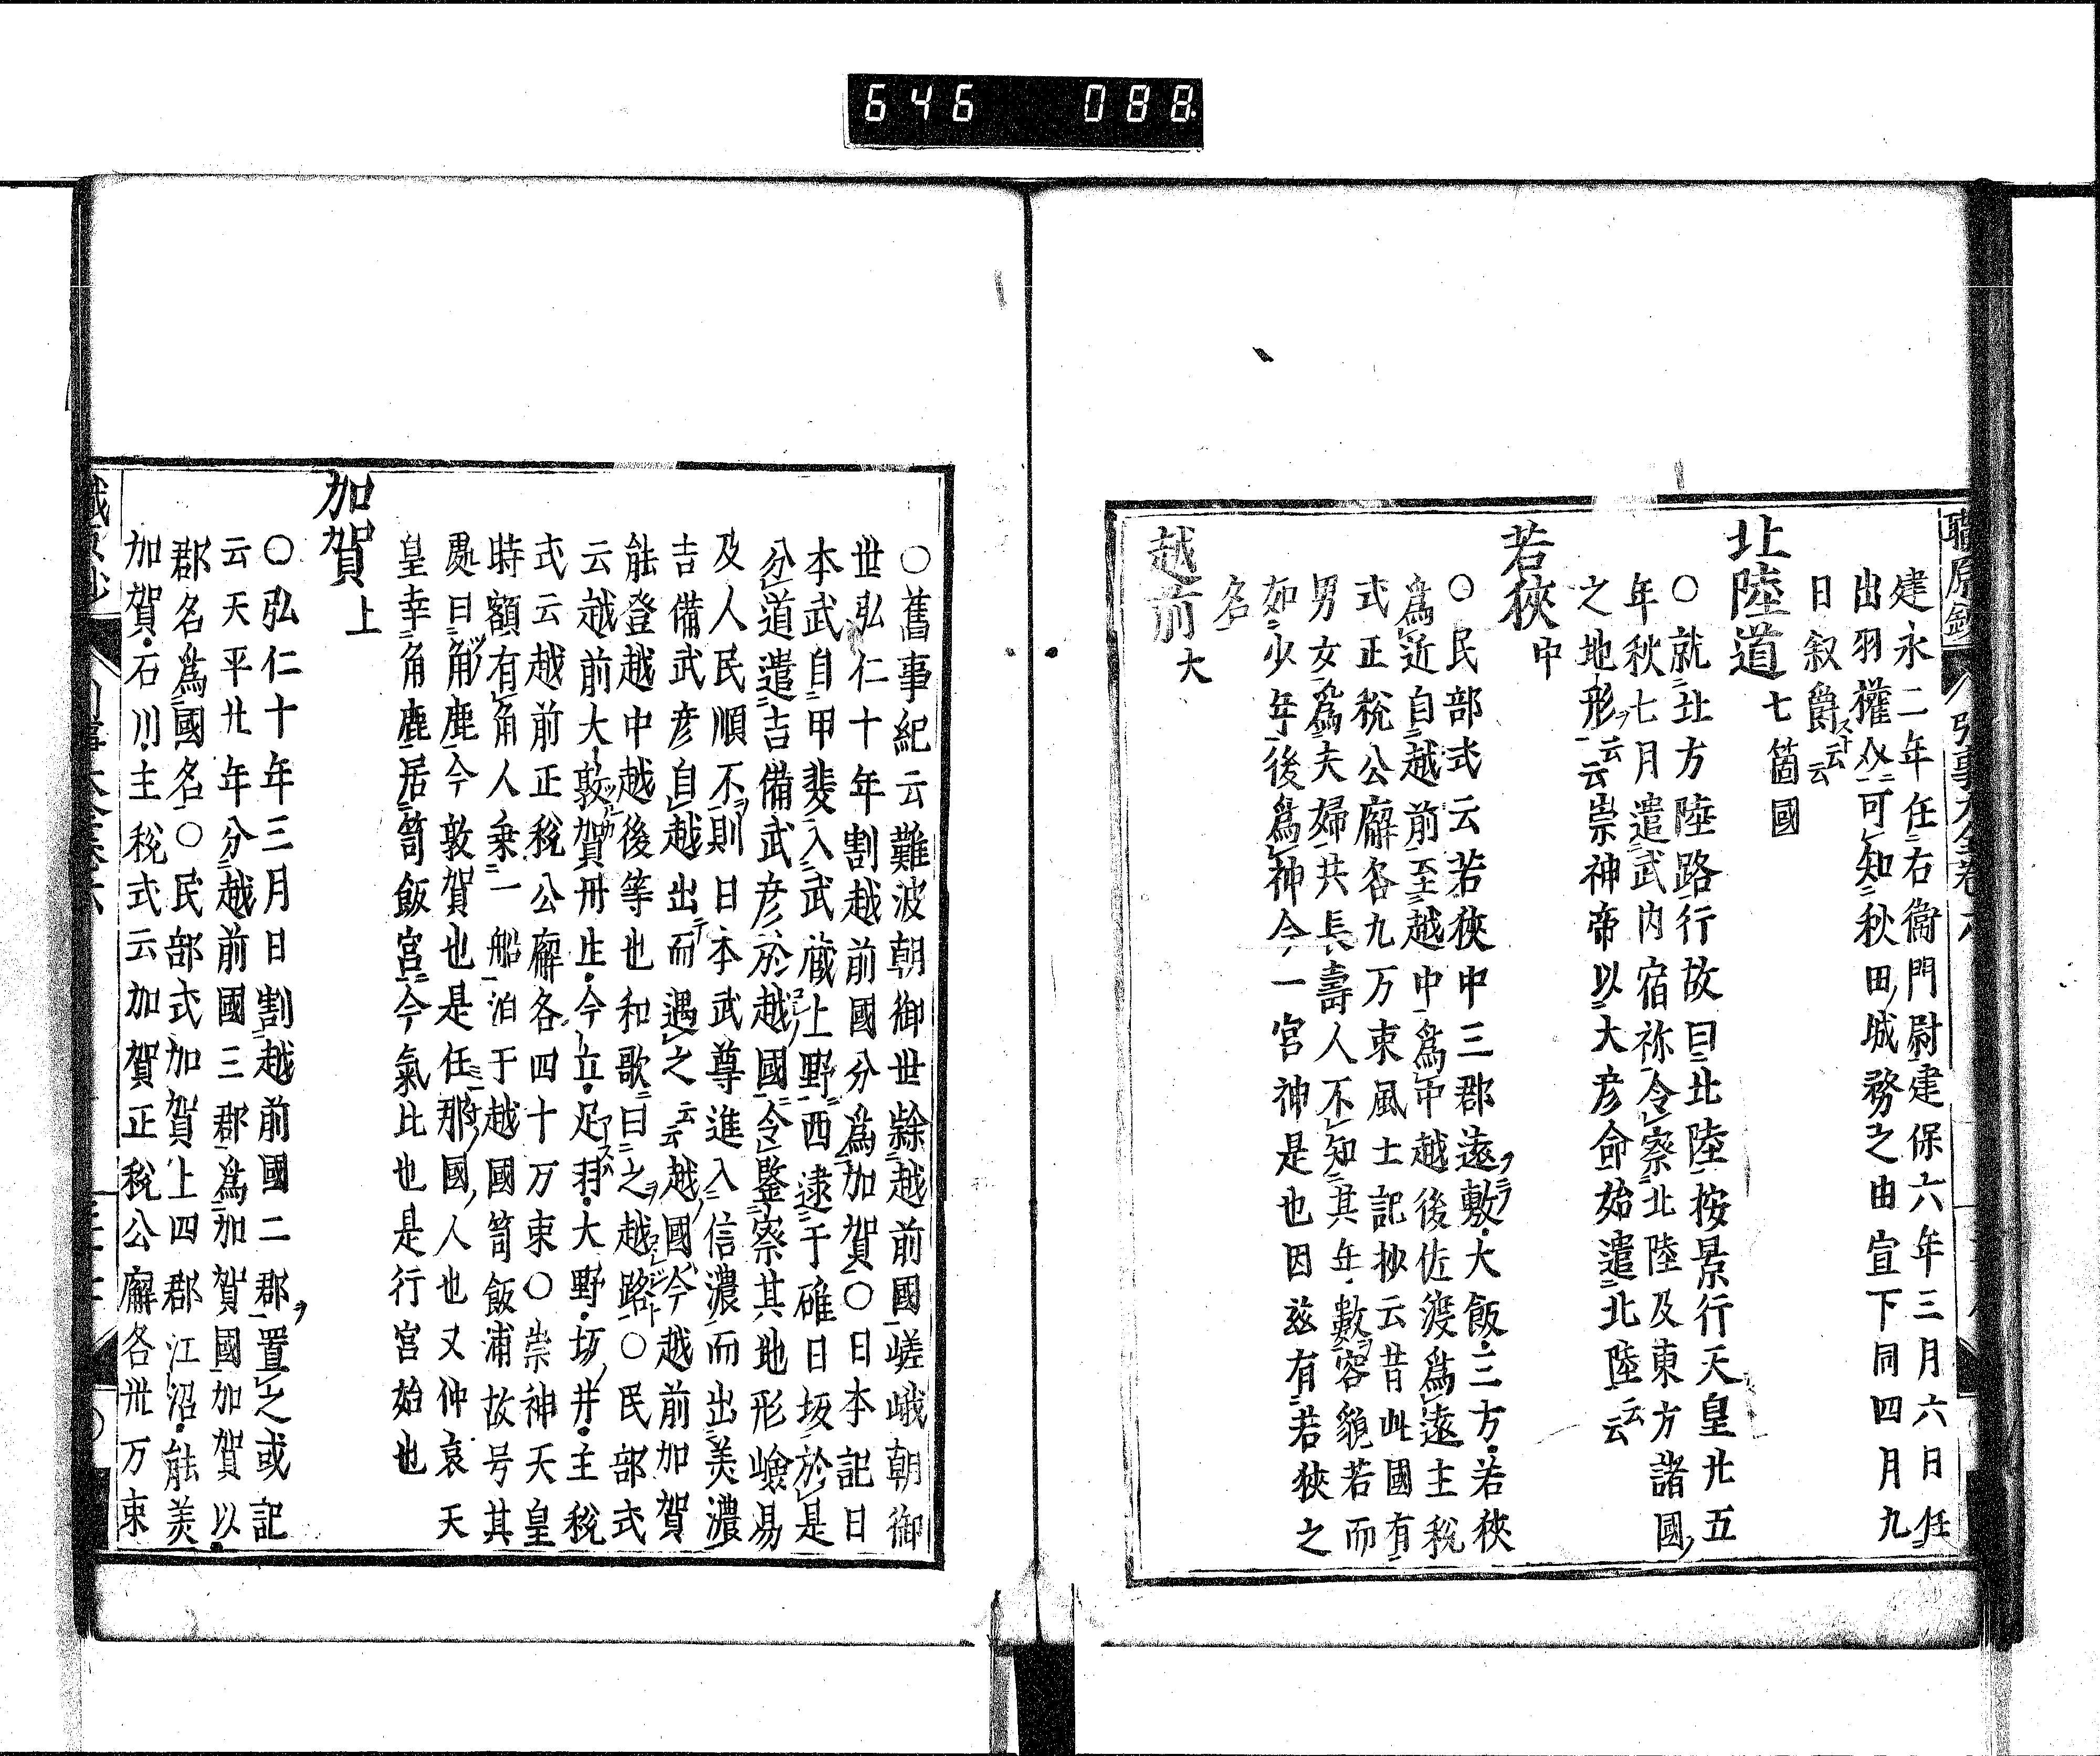 646 088
建永二年任右衛門尉建保六年三月六日任
出羽權介可知秋田城務之由宣下同四月九
日叙爵云云
北陸道七箇國
○就北方陸路行故曰北陸按景行天皇廿五
年秋七月遣武内宿祢令察北陸及東方諸國
之地形云云崇神帝以大彦命始遣北陸云云
若狹中
○民部式云若狹中三郡遠敷大飯三方若狹
爲近自越前至越中爲中越後佐渡爲遠主税
式正税公廨各九万束風土記抄云昔此國有
男女爲夫婦共長壽人不知其年數容貌若而
如少年後爲神今一宮神是也因玆有若狹之
名
越前大
○舊事紀云難波朝御世隸越前國嵯峨朝御
世弘仁十年割越前國分爲加賀○日本記日
本武自甲斐入武藏上野西逮于碓日坂於是
分道遣吉備武彦於越國令鑒察其地形嶮易
及人民順不則日本武尊進入信濃而出美濃
吉備武彦自越出而遇之云云越國今越前加賀
能登越中越後等也和歌曰之越路○民部式
云越前大敦賀丹生今立足羽大野坂井主税
式云越前正税公廨各四十万束○崇神天皇
時額有角人乗一船泊于越國笥飯浦故号其
處曰角鹿今敦賀也是任那國人也又仲哀天
皇幸角鹿居笥飯宮今氣比也是行宮始也
加賀上
○弘仁十年三月日割越前國二郡置之或記
云天平廿年分越前國三郡爲加賀國加賀以
郡名爲國名○民部式加賀上四郡江沼能美
加賀石川主税式云加賀正税公廨各卅万束